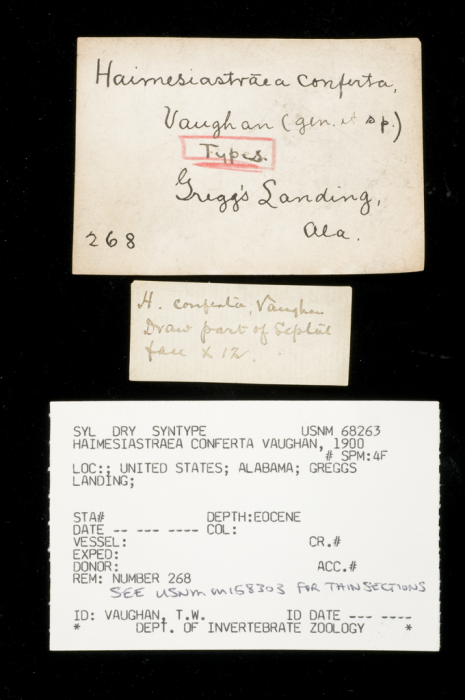 Haimesiastraea conferta,
Vaughan (gen. et sp.)
Types.
Gregg's Landing,
Ala.
268
H. conferta, Vaughan
Draw part of Septal
face X 12.
SYL DRY SYNTYPE USNM 68263
HAIMESIASTRAEA CONFERTA VAUGHAN, 1900
# SPM:4F
LOC:; UNITED STATES; ALABAMA; GREGGS
LANDING;
STA# DEPTH:EOCENE
DATE -- --- ---- COL:
VESSEL: CR.#
EXPED:
DONOR: ACC.#
REM: NUMBER 268
SEE USNM M158303 FOR THIN SECTIONS
ID: VAUGHAN, T.W. ID DATE --- ----
* DEPT. OF INVERTEBRATE ZOOLOGY *